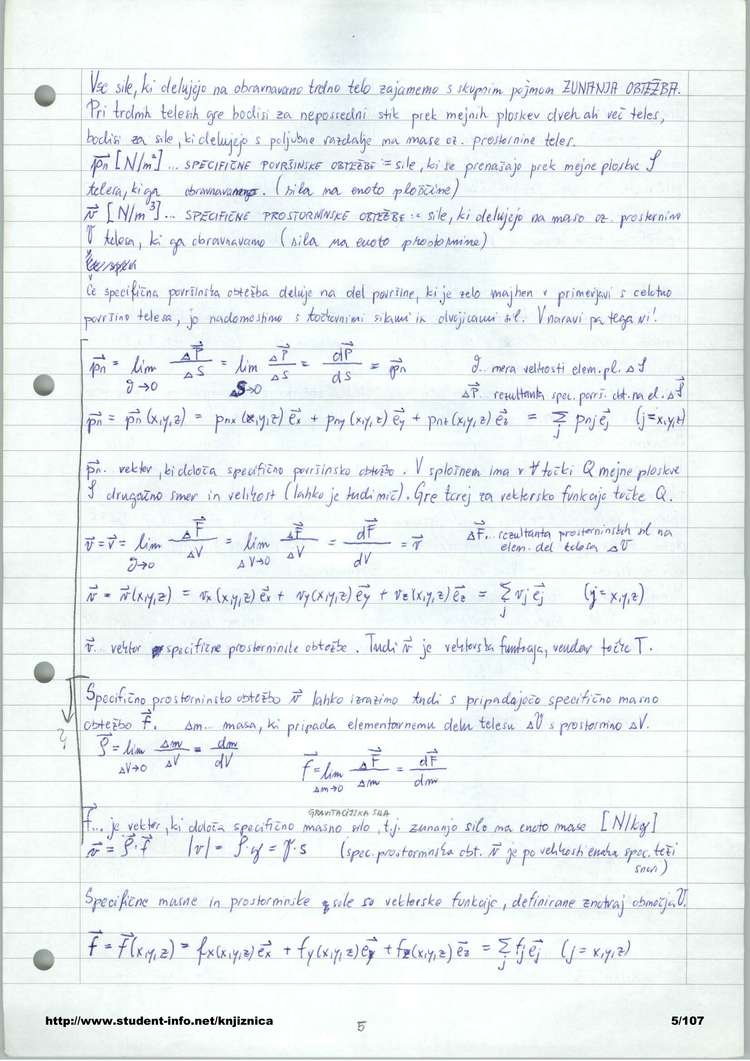 Vse sile, ki delujejo na obravnavano trdno telo zajamemo s skupnim pojmom ZUNANJA OBTEŽBA.
Pri trdnih telesih gre bodisi za neposredni stik prek mejnih ploskev dveh ali več teles,
bodisi za sile, ki delujejo s poljubne razdalje na mase oz. prostornine teles.
p⃗n [N/m²] ... SPECIFIČNE POVRŠINSKE OBTEŽBE := sile, ki se prenašajo prek mejne ploskve S
telesa, ki ga obravnavamo. (sila na enoto ploščine)
v⃗ [N/m³] ... SPECIFIČNE PROSTORNINSKE OBTEŽBE := sile, ki delujejo na maso oz. prostornino
V telesa, ki ga obravnavamo (sila na enoto prostornine)
Če specifična površinska obtežba deluje na del površine, ki je zelo majhen v primerjavi s celotno
površino telesa, jo nadomestimo s točkovnimi silami in dvojicami sil. V naravi pa tega ni!
p⃗n = lim ΔP⃗/ΔS = lim ΔP⃗/ΔS = dP⃗/dS = p⃗n   d... mera velikosti elem. pl. ΔS
d→0   ΔS→0   ΔP⃗.. rezultanta spec. površ. obt. na el. ΔS
p⃗n = p⃗n (x,y,z) = pnx (x,y,z) e⃗x + pny (x,y,z) e⃗y + pnz (x,y,z) e⃗z = Σj pnj e⃗j   (j=x,y,z)
p⃗n.. vektor, ki določa specifično površinsko obtežbo. V splošnem ima v ∀ točki Q mejne ploskve
S drugačno smer in velikost (lahko je tudi nič). Gre torej za vektorsko funkcijo točke Q.
v⃗ = v⃗ = lim ΔF⃗/ΔV = lim ΔF⃗/ΔV = dF⃗/dV = v⃗   ΔF⃗.. rezultanta prostorninskih sil na
d→0   ΔV→0   elem. del telesa ΔV
v⃗ = v⃗(x,y,z) = vx(x,y,z) e⃗x + vy(x,y,z) e⃗y + vz(x,y,z) e⃗z = Σj vj e⃗j   (j=x,y,z)
v⃗... vektor specifične prostorninske obtežbe. Tudi v⃗ je vektorska funkcija, vendar točke T.
Specifično prostorninsko obtežbo v⃗ lahko izrazimo tudi s pripadajočo specifično masno
obtežbo f⃗. Δm... masa, ki pripada elementarnemu delu telesu ΔV s prostornino ΔV.
?
ρ = lim Δm/ΔV = dm/dV
ΔV→0
f⃗ = lim ΔF⃗/Δm = dF⃗/dm
Δm→0
GRAVITACIJSKA SILA
f⃗... je vektor, ki določa specifično masno silo, t.j. zunanjo silo na enoto mase [N/kg]
v⃗ = ρ·f⃗   |v| = ρ·g = γ·s   (spec. prostorninska obt. v⃗ je po velikosti enaka spec. teži
snovi)
Specifične masne in prostorninske sile so vektorske funkcije, definirane znotraj območja V.
f⃗ = f⃗(x,y,z) = fx(x,y,z) e⃗x + fy(x,y,z) e⃗y + fz(x,y,z) e⃗z = Σj fj e⃗j   (j=x,y,z)
http://www.student-info.net/knjiznica
5
5/107